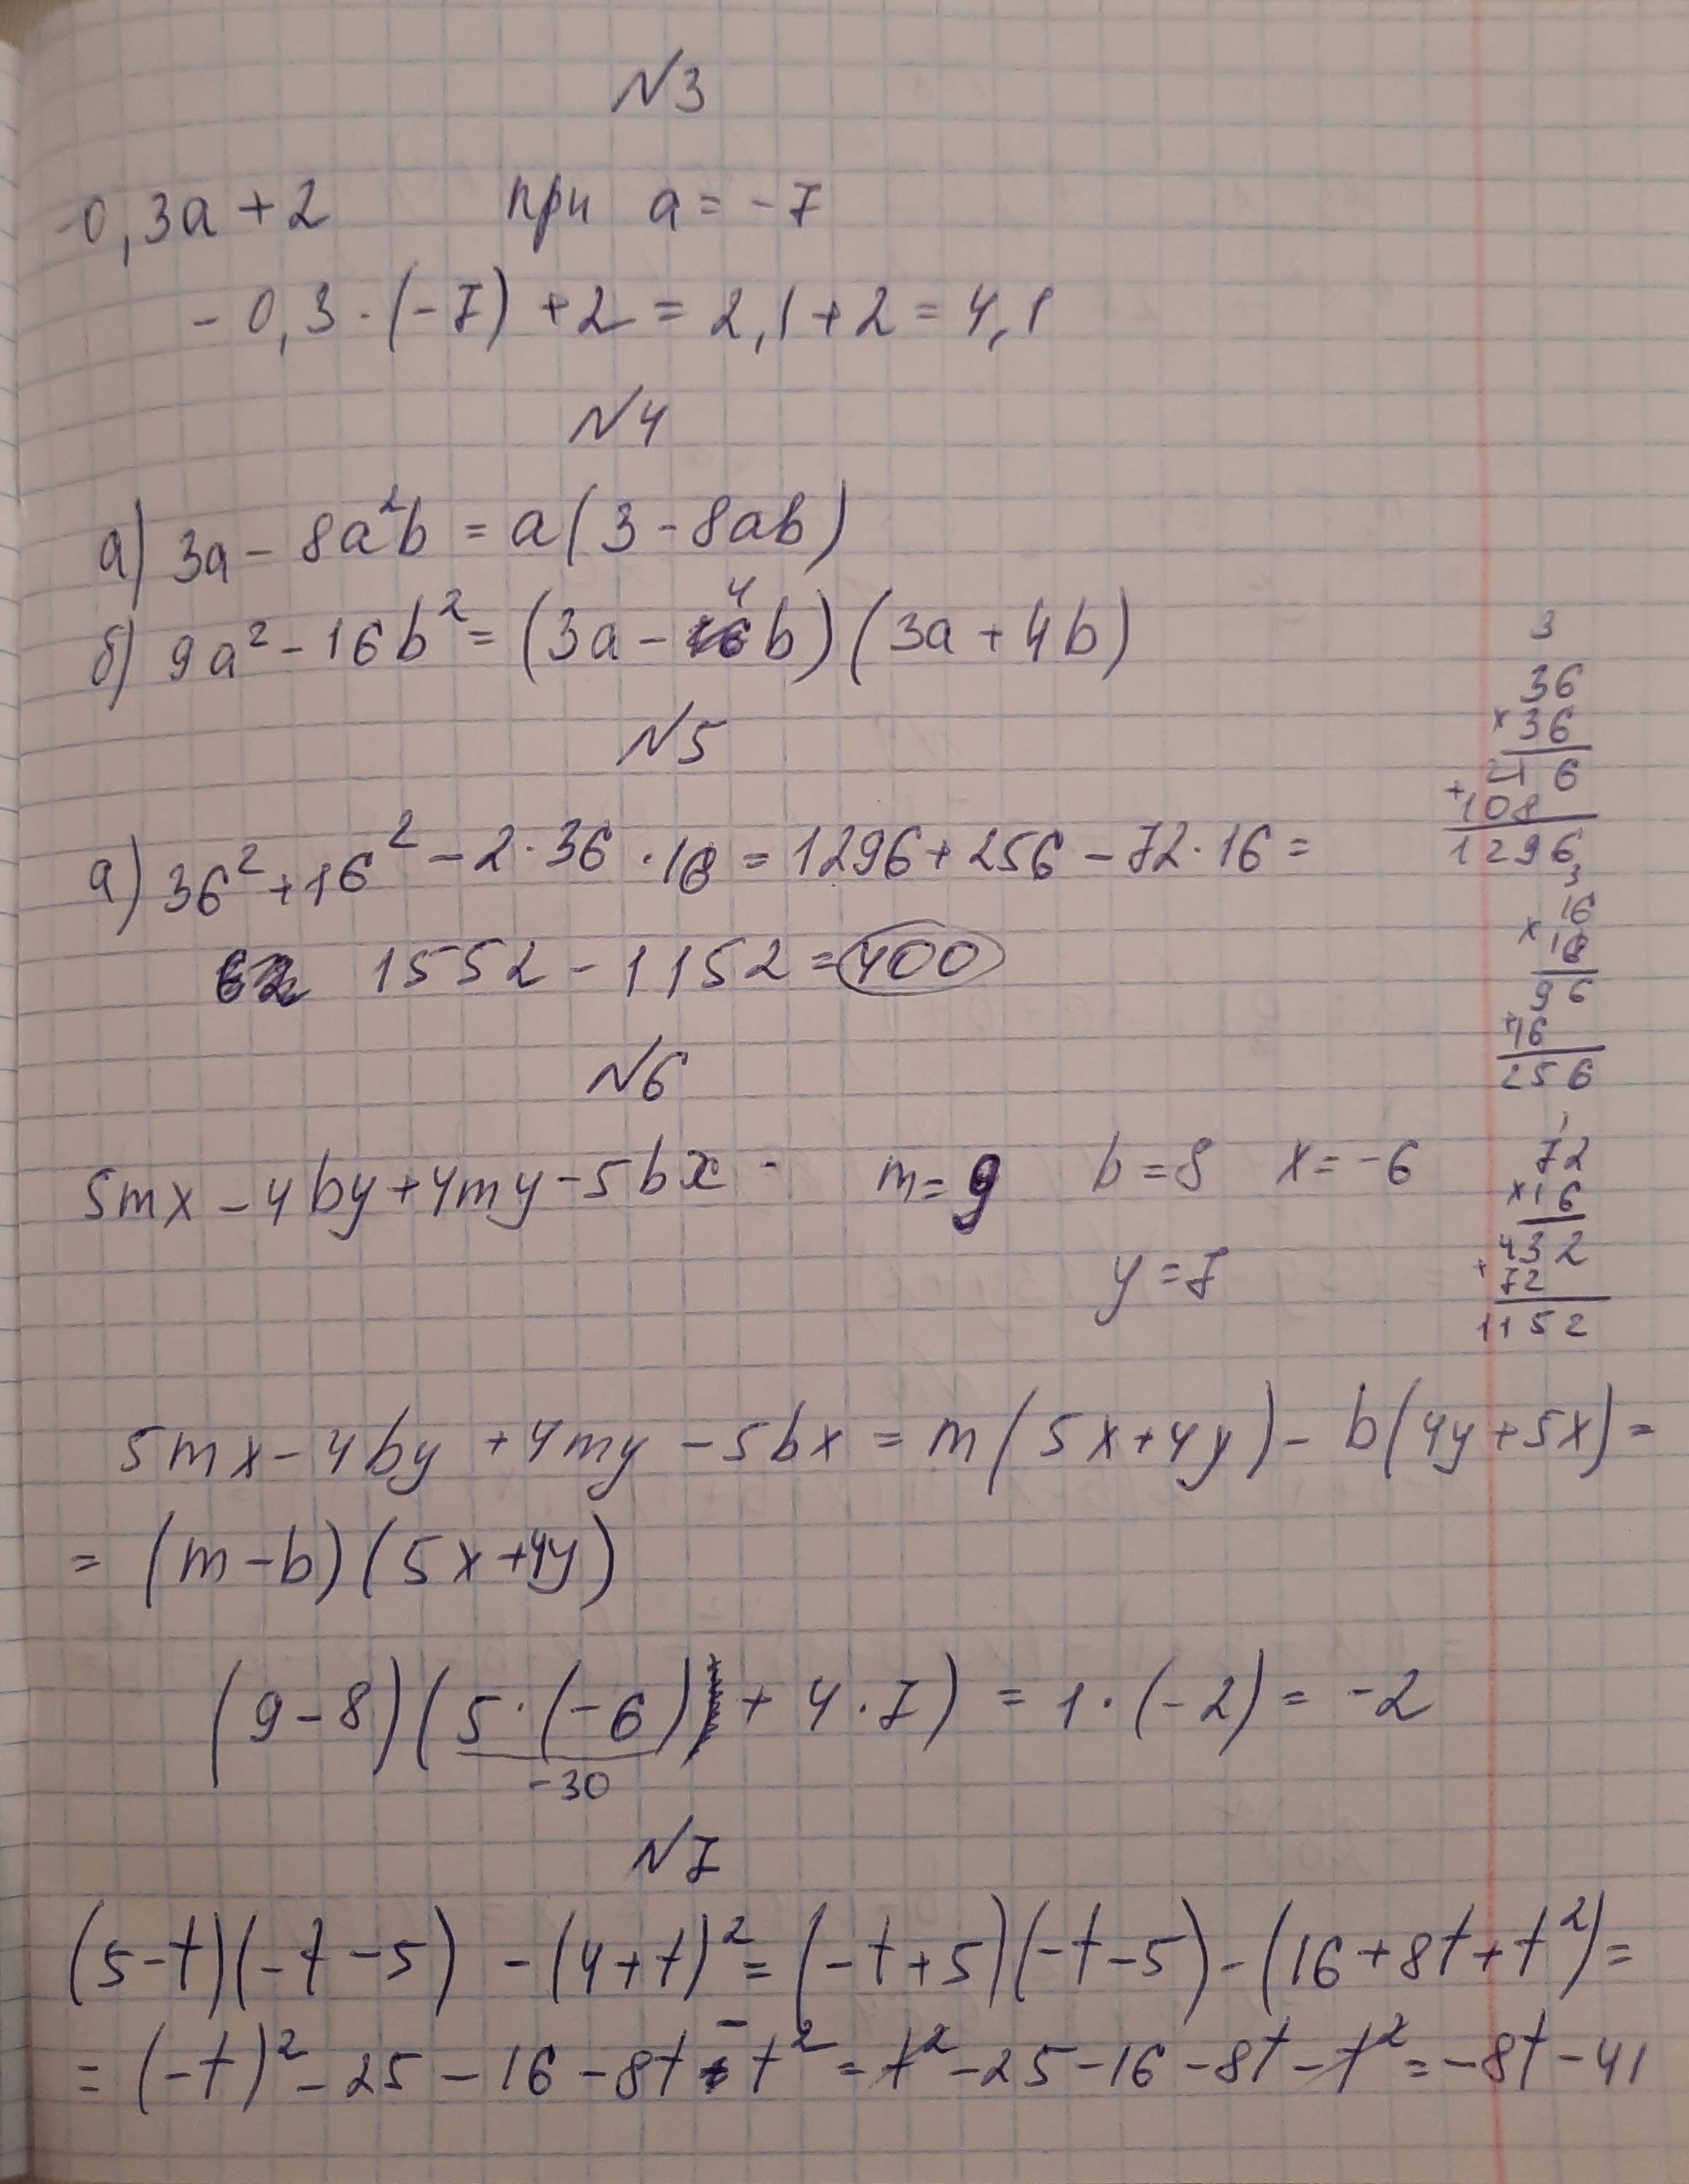 №3
-0,3a+2 при a=-7
-0,3·(-7)+2=2,1+2=4,1
№4
а) 3a-8a²b=a(3-8ab)
б) 9a²-16b²=(3a-4b)(3a+4b)
№5
а) 36²+16²-2·36·16=1296+256-72·16=
1552-1152=400
№6
5mx-4by+4my-5bx m=9 b=8 x=-6
y=7
5mx-4by+4my-5bx=m(5x+4y)-b(4y+5x)=
=(m-b)(5x+4y)
(9-8)(5·(-6)+4·7)=1·(-2)=-2
-30
№7
(5-t)(-t-5)-(4+t)²=(-t+5)(-t-5)-(16+8t+t²)=
=(-t)²-25-16-8t-t²=t²-25-16-8t-t²=-8t-41
3
36
×36
216
+108
1296
3
16
×16
96
+16
256
1
72
×16
432
+72
1152